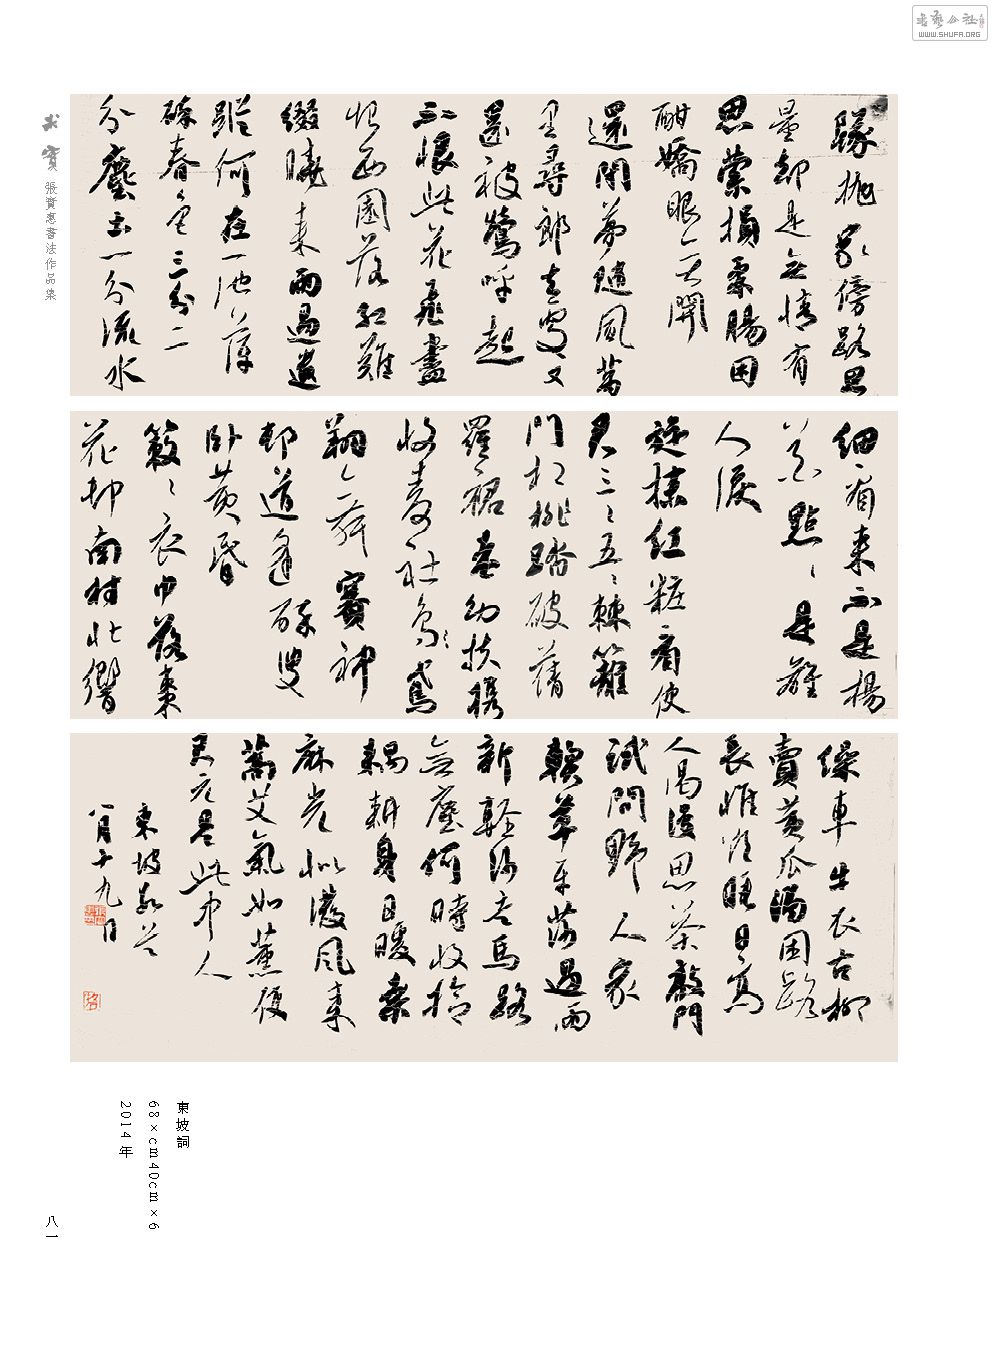 隊抛家傍路思
量却是無情有
思縈損柔腸困
酣嬌眼欲開
還閉夢隨風萬
里尋郎去處又
還被鶯呼起
不恨此花飛盡
恨西園落紅難
綴曉來雨過遺
蹤何在一池萍
碎春色三分二
分塵土一分流水
細看來不是楊
花點〻是離
人淚
旋抹紅粧看使
君三〻五〻棘籬
門相排踏破蒨
羅裙老幼扶攜
收麥社烏鳶
翔舞賽神
邨道逢醉叟
卧黃昏
簌〻衣巾落棗
花邨南村北響
繰車牛衣古柳
賣黃瓜酒困路
長惟欲睡日高
人渴漫思茶敲門
試問野人家
軟草平莎過雨
新輕沙走馬路
無塵何時收拾
耦耕身日暖桑
麻光似潑風來
蒿艾氣如薰使
君元是此中人
東坡數首
八月十九日
東坡詞
68×cm40cm×6
2014年
求實 張實惠書法作品集
八一
書藝公社
WWW.SHUFA.ORG